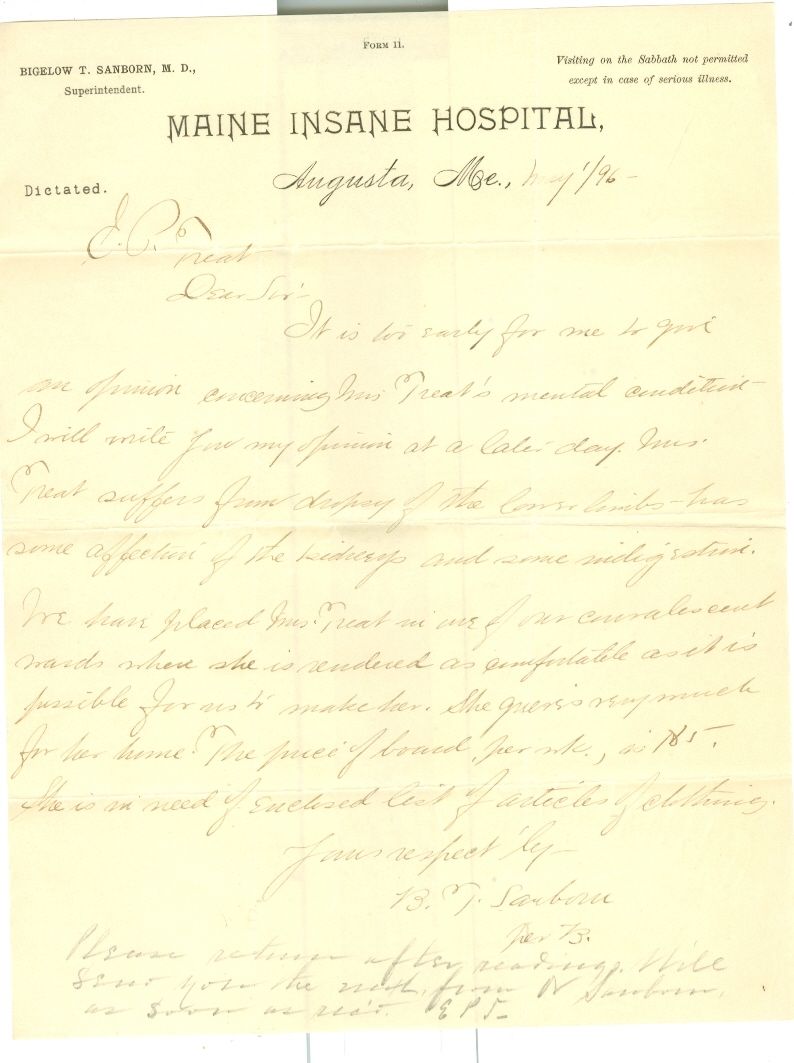 FORM 11.
BIGELOW T. SANBORN, M. D.,
Superintendent.
Visiting on the Sabbath not permitted
except in case of serious illness.
MAINE INSANE HOSPITAL,
Dictated.
Augusta, Me., May 1/96-
E. P. Treat
Dear Sir-
It is too early for me to give
an opinion concerning Mrs Treat's mental condition-
I will write you my opinion at a later day. Mrs.
Treat suffers from dropsy of the lower limbs-has
some affection of the kidneys and some indigestion.
We have placed Mrs. Treat in one of our convalescent
wards where she is rendered as comfortable as it is
possible for us to make her. She grieves very much
for her home. The price of board, per wk., is
She is in need of enclosed list of articles of clothing.
Yours respect'ly-
B. T. Sanborn
per B.
Please return after reading. Will
send you the next from Dr Sanborn,
as soon as rec'd. E P T-